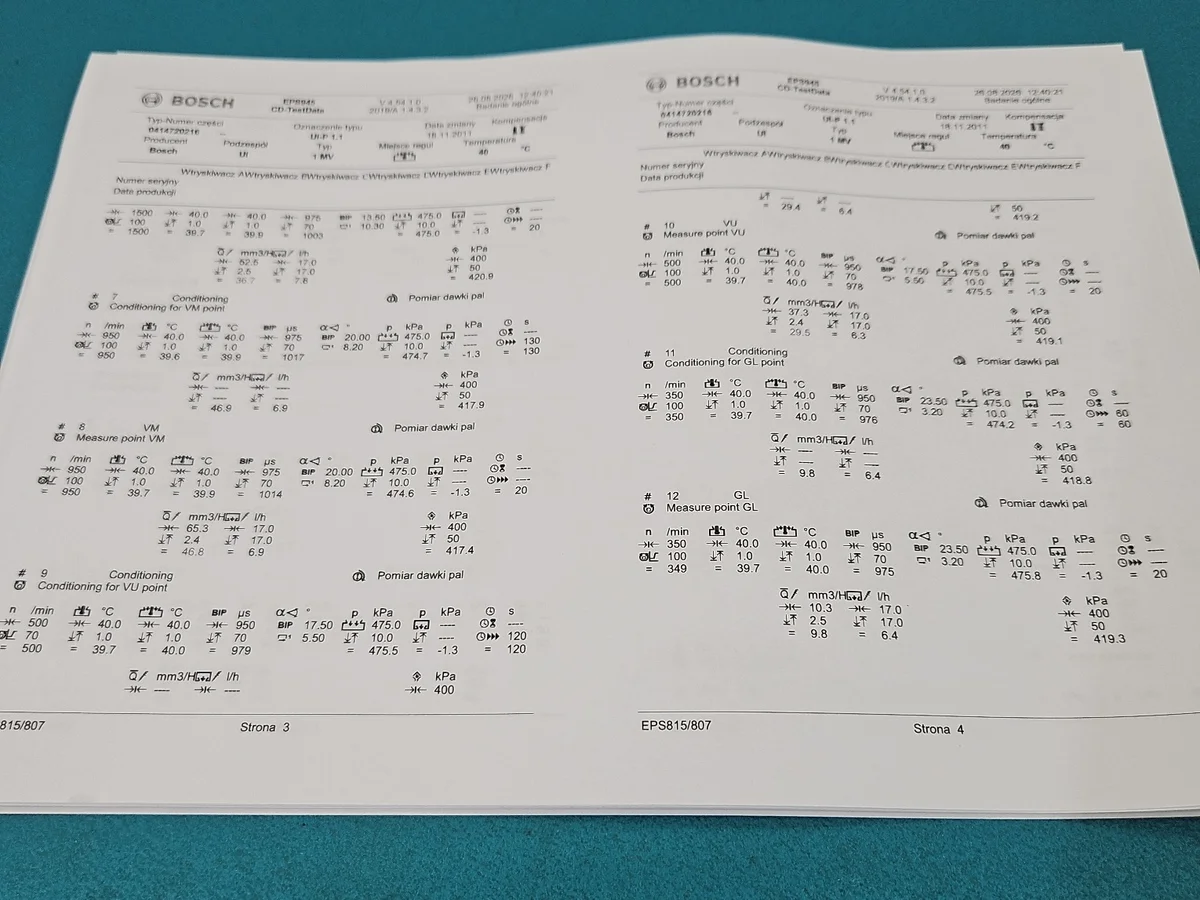 BOSCH
EPS945
CD-TestData
V 4.54.1.0
2019/A 1.4.3.2
12:40:21
Badanie ogólne
Typ-Numer części
Oznaczenie typu
Data zmiany
Kompensacja
0414720216
--
UI-P 1.1
18.11.2011
Producent
Podzespół
Typ
Miejsce regul
Temperatura
Bosch
UI
1 MV
40 °C
Wtryskiwacz AWtryskiwacz BWtryskiwacz CWtryskiwacz DWtryskiwacz EWtryskiwacz F
Numer seryjny
Data produkcji
1500 40.0 40.0 975 BIP 13.50 475.0 ---- ----
100 1.0 1.0 70 10.30 10.0 ----
= 1500 = 39.7 = 39.9 = 1003 = 475.0 = -1.3 = 20
Q/ mm3/H / l/h kPa
52.5 17.0 400
2.5 17.0 50
= 36.7 = 7.8 = 420.9
# 7 Conditioning Pomiar dawki pal
Conditioning for VM point
n /min °C °C BIP µs α ° p kPa p kPa s
950 40.0 40.0 975 BIP 20.00 475.0 ---- ----
100 1.0 1.0 70 8.20 10.0 ---- 130
= 950 = 39.6 = 39.9 = 1017 = 474.7 = -1.3 = 130
Q/ mm3/H / l/h kPa
---- ---- 400
---- ---- 50
= 46.9 = 6.9 = 417.9
# 8 VM Pomiar dawki pal
Measure point VM
n /min °C °C BIP µs α ° p kPa p kPa s
950 40.0 40.0 975 BIP 20.00 475.0 ---- ----
100 1.0 1.0 70 8.20 10.0 ---- ----
= 950 = 39.7 = 39.9 = 1014 = 474.6 = -1.3 = 20
Q/ mm3/H / l/h kPa
65.3 17.0 400
2.4 17.0 50
= 46.8 = 6.9 = 417.4
# 9 Conditioning Pomiar dawki pal
Conditioning for VU point
n /min °C °C BIP µs α ° p kPa p kPa s
500 40.0 40.0 950 BIP 17.50 475.0 ---- ----
70 1.0 1.0 70 5.50 10.0 ---- 120
= 500 = 39.7 = 40.0 = 979 = 475.5 = -1.3 = 120
Q/ mm3/H / l/h kPa
---- ---- 400
815/807 Strona 3
BOSCH
EPS945
CD-TestData
V 4.54.1.0
2019/A 1.4.3.2
12:40:21
Badanie ogólne
Typ-Numer części
Oznaczenie typu
Data zmiany
Kompensacja
0414720216
--
UI-P 1.1
18.11.2011
Producent
Podzespół
Typ
Miejsce regul
Temperatura
Bosch
UI
1 MV
40 °C
Wtryskiwacz AWtryskiwacz BWtryskiwacz CWtryskiwacz DWtryskiwacz EWtryskiwacz F
Numer seryjny
Data produkcji
---- ---- 50
= 29.4 = 6.4 = 419.2
# 10 VU Pomiar dawki pal
Measure point VU
n /min °C °C BIP µs α ° p kPa p kPa s
500 40.0 40.0 950 BIP 17.50 475.0 ---- ----
100 1.0 1.0 70 5.50 10.0 ---- ----
= 500 = 39.7 = 40.0 = 978 = 475.5 = -1.3 = 20
Q/ mm3/H / l/h kPa
37.3 17.0 400
2.4 17.0 50
= 29.5 = 6.3 = 419.1
# 11 Conditioning Pomiar dawki pal
Conditioning for GL point
n /min °C °C BIP µs α ° p kPa p kPa s
350 40.0 40.0 950 BIP 23.50 475.0 ---- ----
100 1.0 1.0 70 3.20 10.0 ---- 60
= 350 = 39.7 = 40.0 = 976 = 474.2 = -1.3 = 60
Q/ mm3/H / l/h kPa
---- ---- 400
---- ---- 50
= 9.8 = 6.4 = 418.8
# 12 GL Pomiar dawki pal
Measure point GL
n /min °C °C BIP µs α ° p kPa p kPa s
350 40.0 40.0 950 BIP 23.50 475.0 ---- ----
100 1.0 1.0 70 3.20 10.0 ---- ----
= 349 = 39.7 = 40.0 = 975 = 475.8 = -1.3 = 20
Q/ mm3/H / l/h kPa
10.3 17.0 400
2.5 17.0 50
= 9.8 = 6.4 = 419.3
EPS815/807 Strona 4